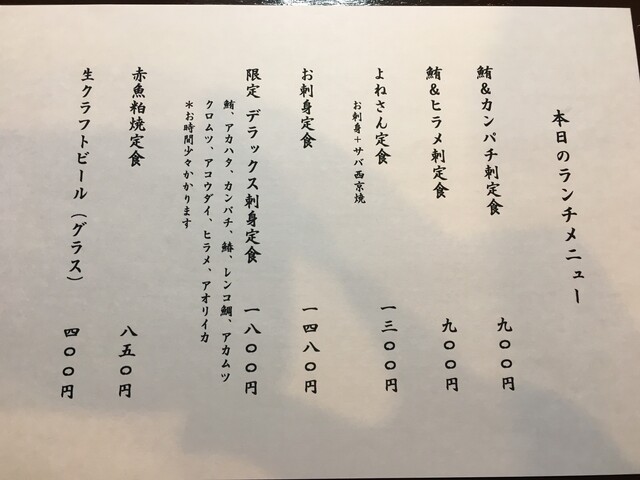 本日のランチメニュー
鮪&カンパチ刺定食 九〇〇円
鮪&ヒラメ刺定食 九〇〇円
よねさん定食 一三〇〇円
お刺身+サバ西京焼
お刺身定食 一四八〇円
限定 デラックス刺身定食 一八〇〇円
鮪、アカハタ、カンパチ、鰆、レンコ鯛、アカムツ
クロムツ、アコウダイ、ヒラメ、アオリイカ
*お時間少々かかります
赤魚粕焼定食 八五〇円
生クラフトビール(グラス) 四〇〇円